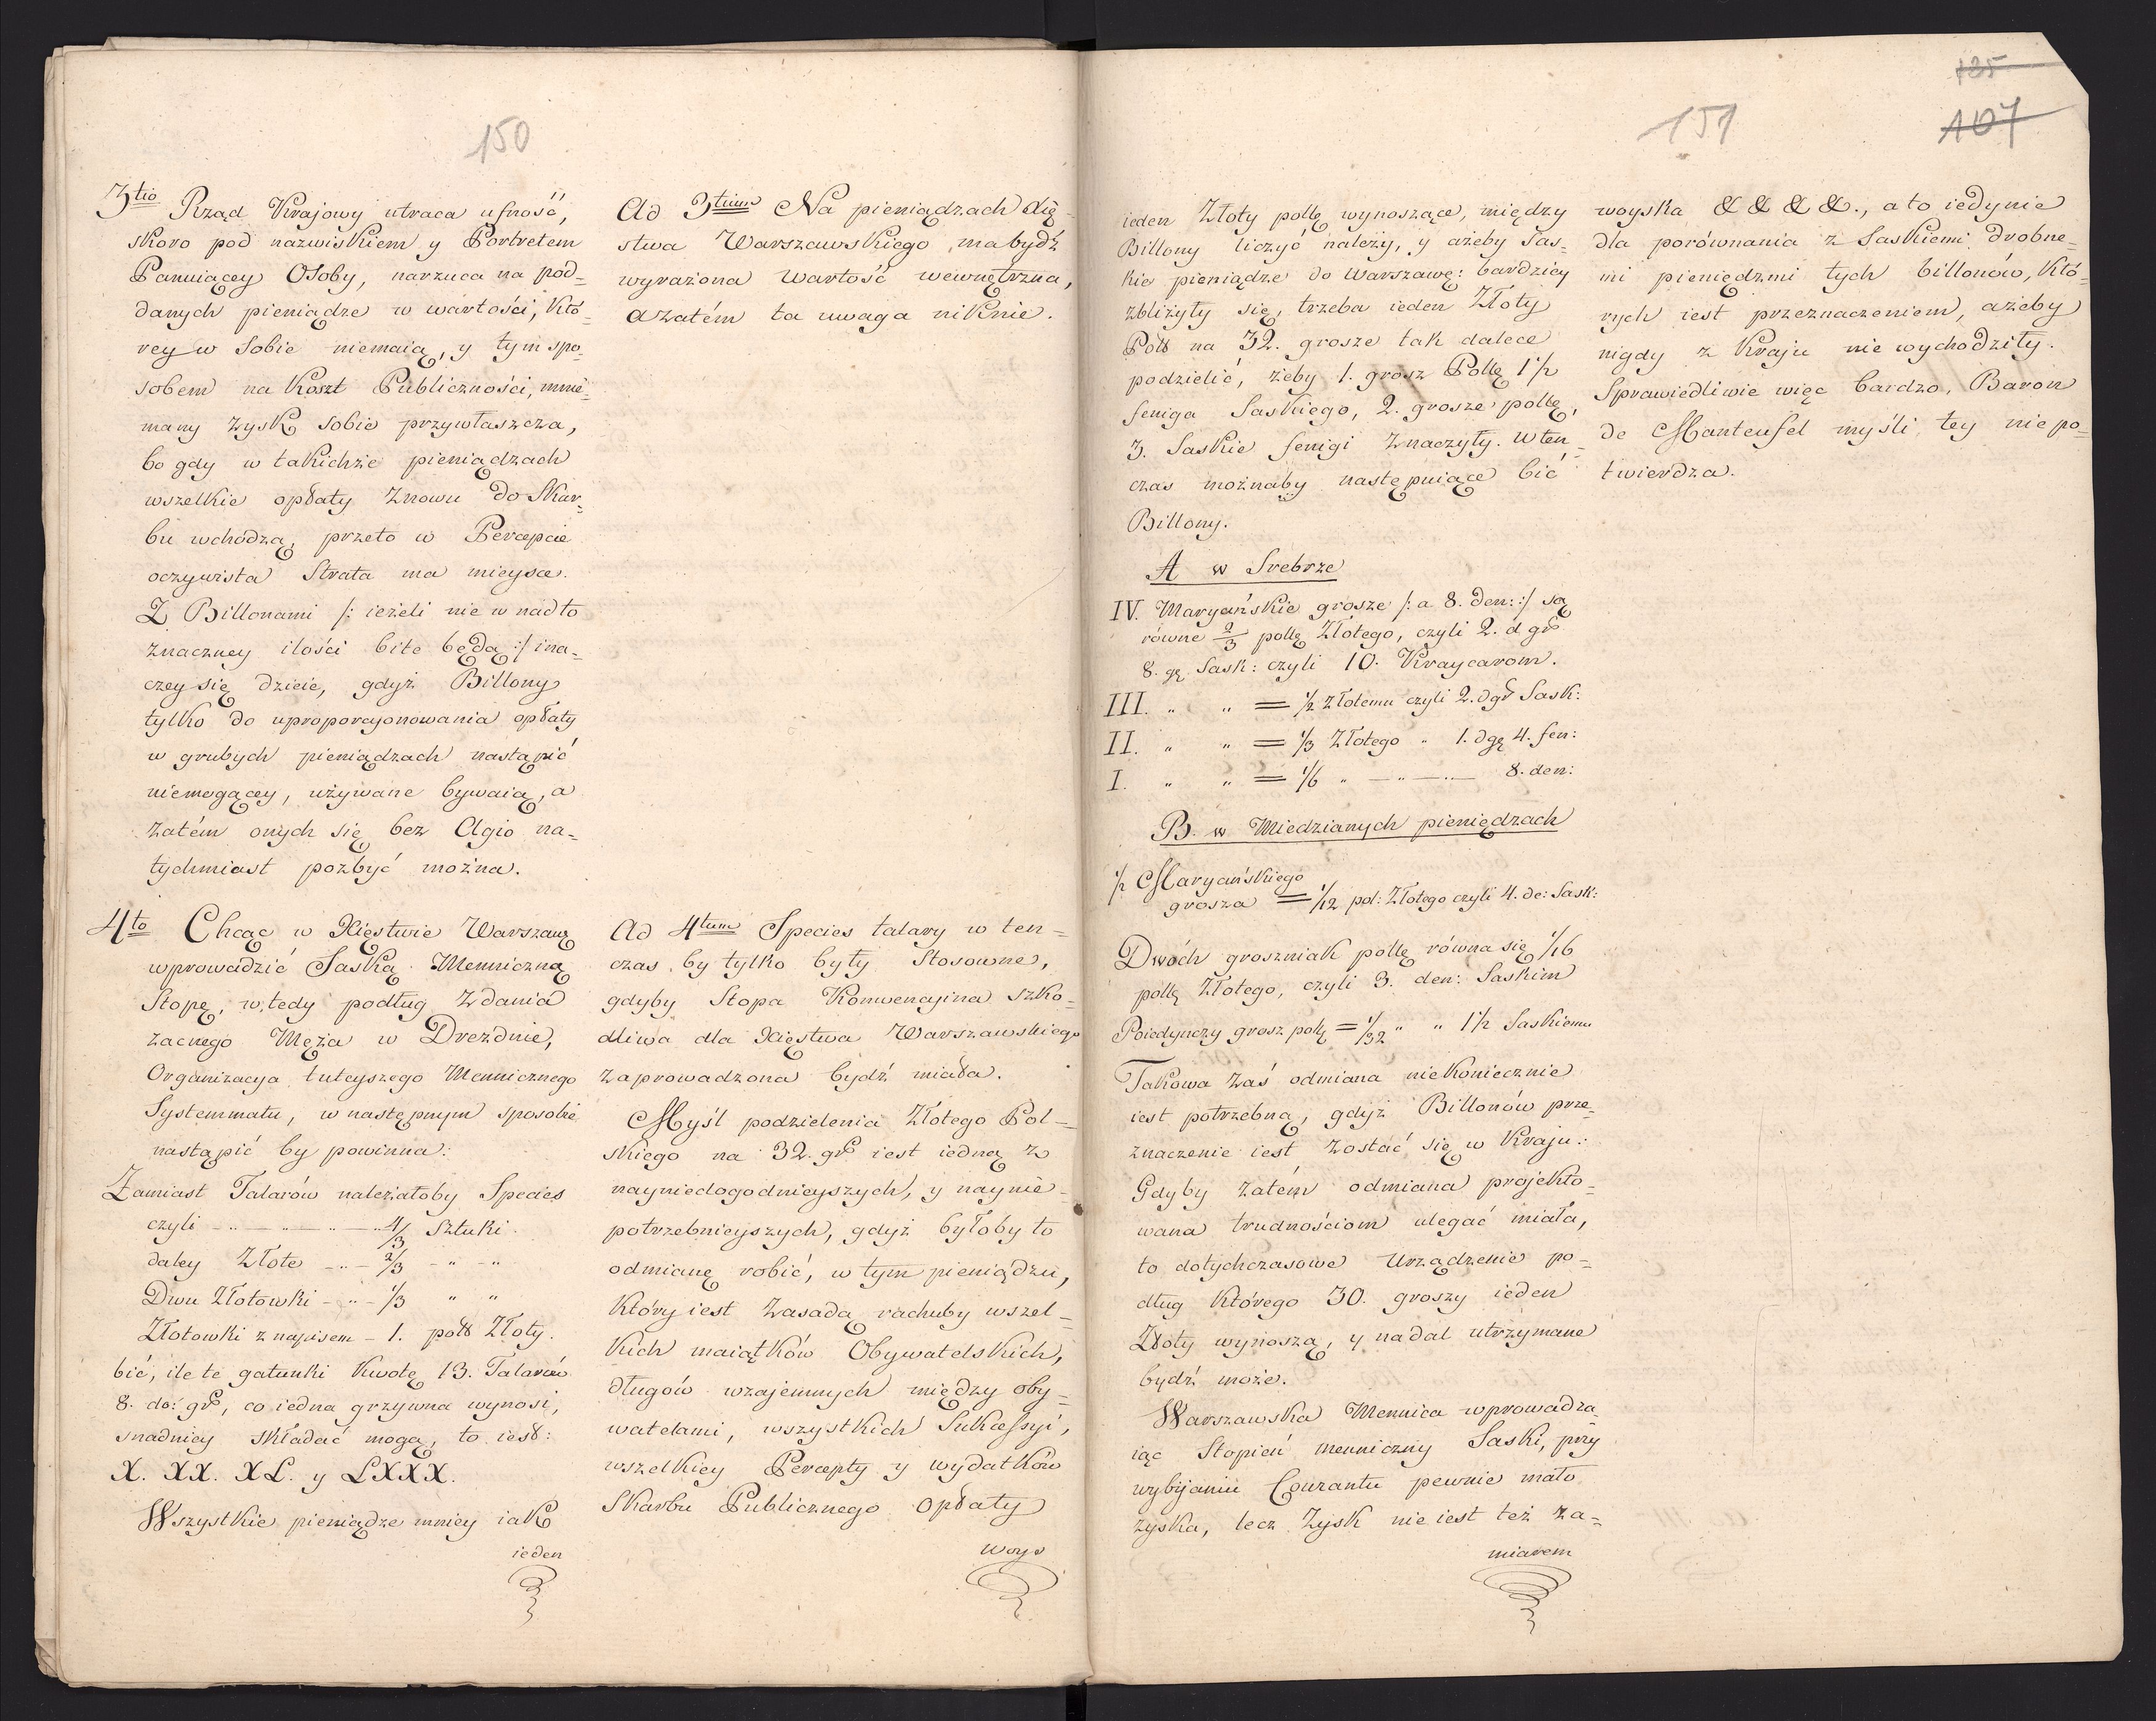 150
3tio Rząd Krajowy utraca ufność,
skoro pod nazwiskiem y Portretem
Panuiącey Osoby, narzuca na pod=
danych pieniądze w wartości, któ=
rey w sobie niemaią, y tym spo=
sobem na koszt Publiczności, mnie=
many zysk sobie przywłaszcza,
bo gdy w takichże pieniądzach
wszelkie opłaty znowu do Skar=
bu wchodzą, przeto w Percepcie
oczywista Strata ma mieysce.
Z Billonami /: ieżeli nie w nadto
znaczney ilości bite będą :/ ina=
czey się dzieie, gdyż Billony
tylko do uproporcyonowania opłaty
w grubych pieniądzach nastąpić
niemogącey, używane bywaią, a
zatém onych się bez Agio na=
tychmiast pozbyć można.
4to Chcąc w Xięstwie Warszawę
wprowadzić Saską Menniczną
Stopę, w,tedy podług zdania
zacnego Męża w Dreznie,
Organizacya tuteyszego Mennicznego
Systemmatu, w następnym sposobie
nastąpić by powinna:
Zamiast Talarów należałoby Species
czyli - " - " - " 4/3 Sztuki.
daley Złote - " - 2/3 - " - "
Dwu Złotowki - " - 1/3 " "
Złotowki z napisem - 1. pols Złoty.
bić, ile te gatunki kwotę 13. Talarów
8. do: gr, co iedna grzywna wynosi,
snadniey składać mogą, to iest:
X. XX. XL. y LXXX.
Wszystkie pieniądze mniey iak
ieden
Ad 3tium Na pieniądzach Xię=
stwa Warszawskiego, ma bydź
wyrażona wartość wewnętrzna,
a zatém ta uwaga niknie.
Ad 4tum Species talary w ten=
czas by tylko były Stosowne,
gdyby Stopa Konwencyina szko=
dliwa dla Xięstwa Warszawskiego
zaprowadzona bydź miała.
Myśl podzielenia Złotego Pol=
skiego na 32. gr iest iedną z
nayniedogodnieyszych, y naynie=
potrzebnieyszych, gdyż byłoby to
odmianę robić, w tym pieniądzu,
który iest zasadą rachuby wszel=
kich maiątków Obywatelskich,
długów wzajemnych między oby=
watelami, wszystkich Sukcessyi,
wszelkiey Percepty y wydatków
Skarbu Publicznego opłaty
woys
125
151
107
ieden Złoty pollę wynoszące, między
Billony liczyć należy, y ażeby Sas=
kie pieniądze do Warszawę: bardziey
zbliżyły się, trzeba ieden Złoty
Pols na 32. grosze tak dalece
podzielić, żeby 1. grosz Pollę 1 1/2
feniga Saskiego, 2. grosze pollę,
3. Saskie fenigi znaczyły. Wten=
czas możnaby następuiące bić
Billony.
A w Srebrze
IV. Maryańskie grosze /: a 8. den: :/ są
równe 2/3 pollę Złotego, czyli 2. d gr
8. gę. Sask: czyli 10. Kraycarom.
III. " " = 1/2 złotemu czyli 2. dgr Sask:
II. " " = 1/3 Złotego " 1. dgę 4. fen:
I. " " = 1/6 " - " - 8. den:
B. w Miedzianych pieniędzach
1/2 Maryańskiego
grosza = 1/12 pol: Złotego czyli 4. de: Sask:
Dwóch groszniak pollę równa się 1/16
pollę Złotego, czyli 3. den: Saskim
Poiedynczy grosz polę = 1/32 " " 1 1/2 Saskiemu
Takowa zaś odmiana niekoniecznie
iest potrzebną, gdyż Billonów prze=
znaczenie iest zostać się w Kraju:
Gdyby zatém odmiana projekto=
wana trudnościom ulegać miała,
to dotychczasowe urządzenie po=
dług którego 30. groszy ieden
Złoty wynoszą, y nadal utrzymane
bydź może.
Warszawska Mennica wprowadza=
iąc Stopień menniczny Saski, przy
wybijaniu Courantu pewnie mało
zyska, lecz Zysk nie iest też za=
miarem
woyska & & & &., a to iedynie
dla porównania z Saskiemi drobne=
mi pieniędzmi tych billonów, któ=
rych iest przeznaczeniem, ażeby
nigdy z Kraju nie wychodziły.
Sprawiedliwie więc bardzo, Baron
de Manteufel myśli tey niepo=
twierdza.